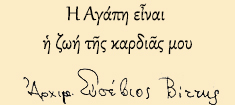 Ἡ Ἀγάπη εἶναι
ἡ ζωή τῆς καρδιᾶς μου
Ἀρχιμ. Εὐσέβιος Βίττης